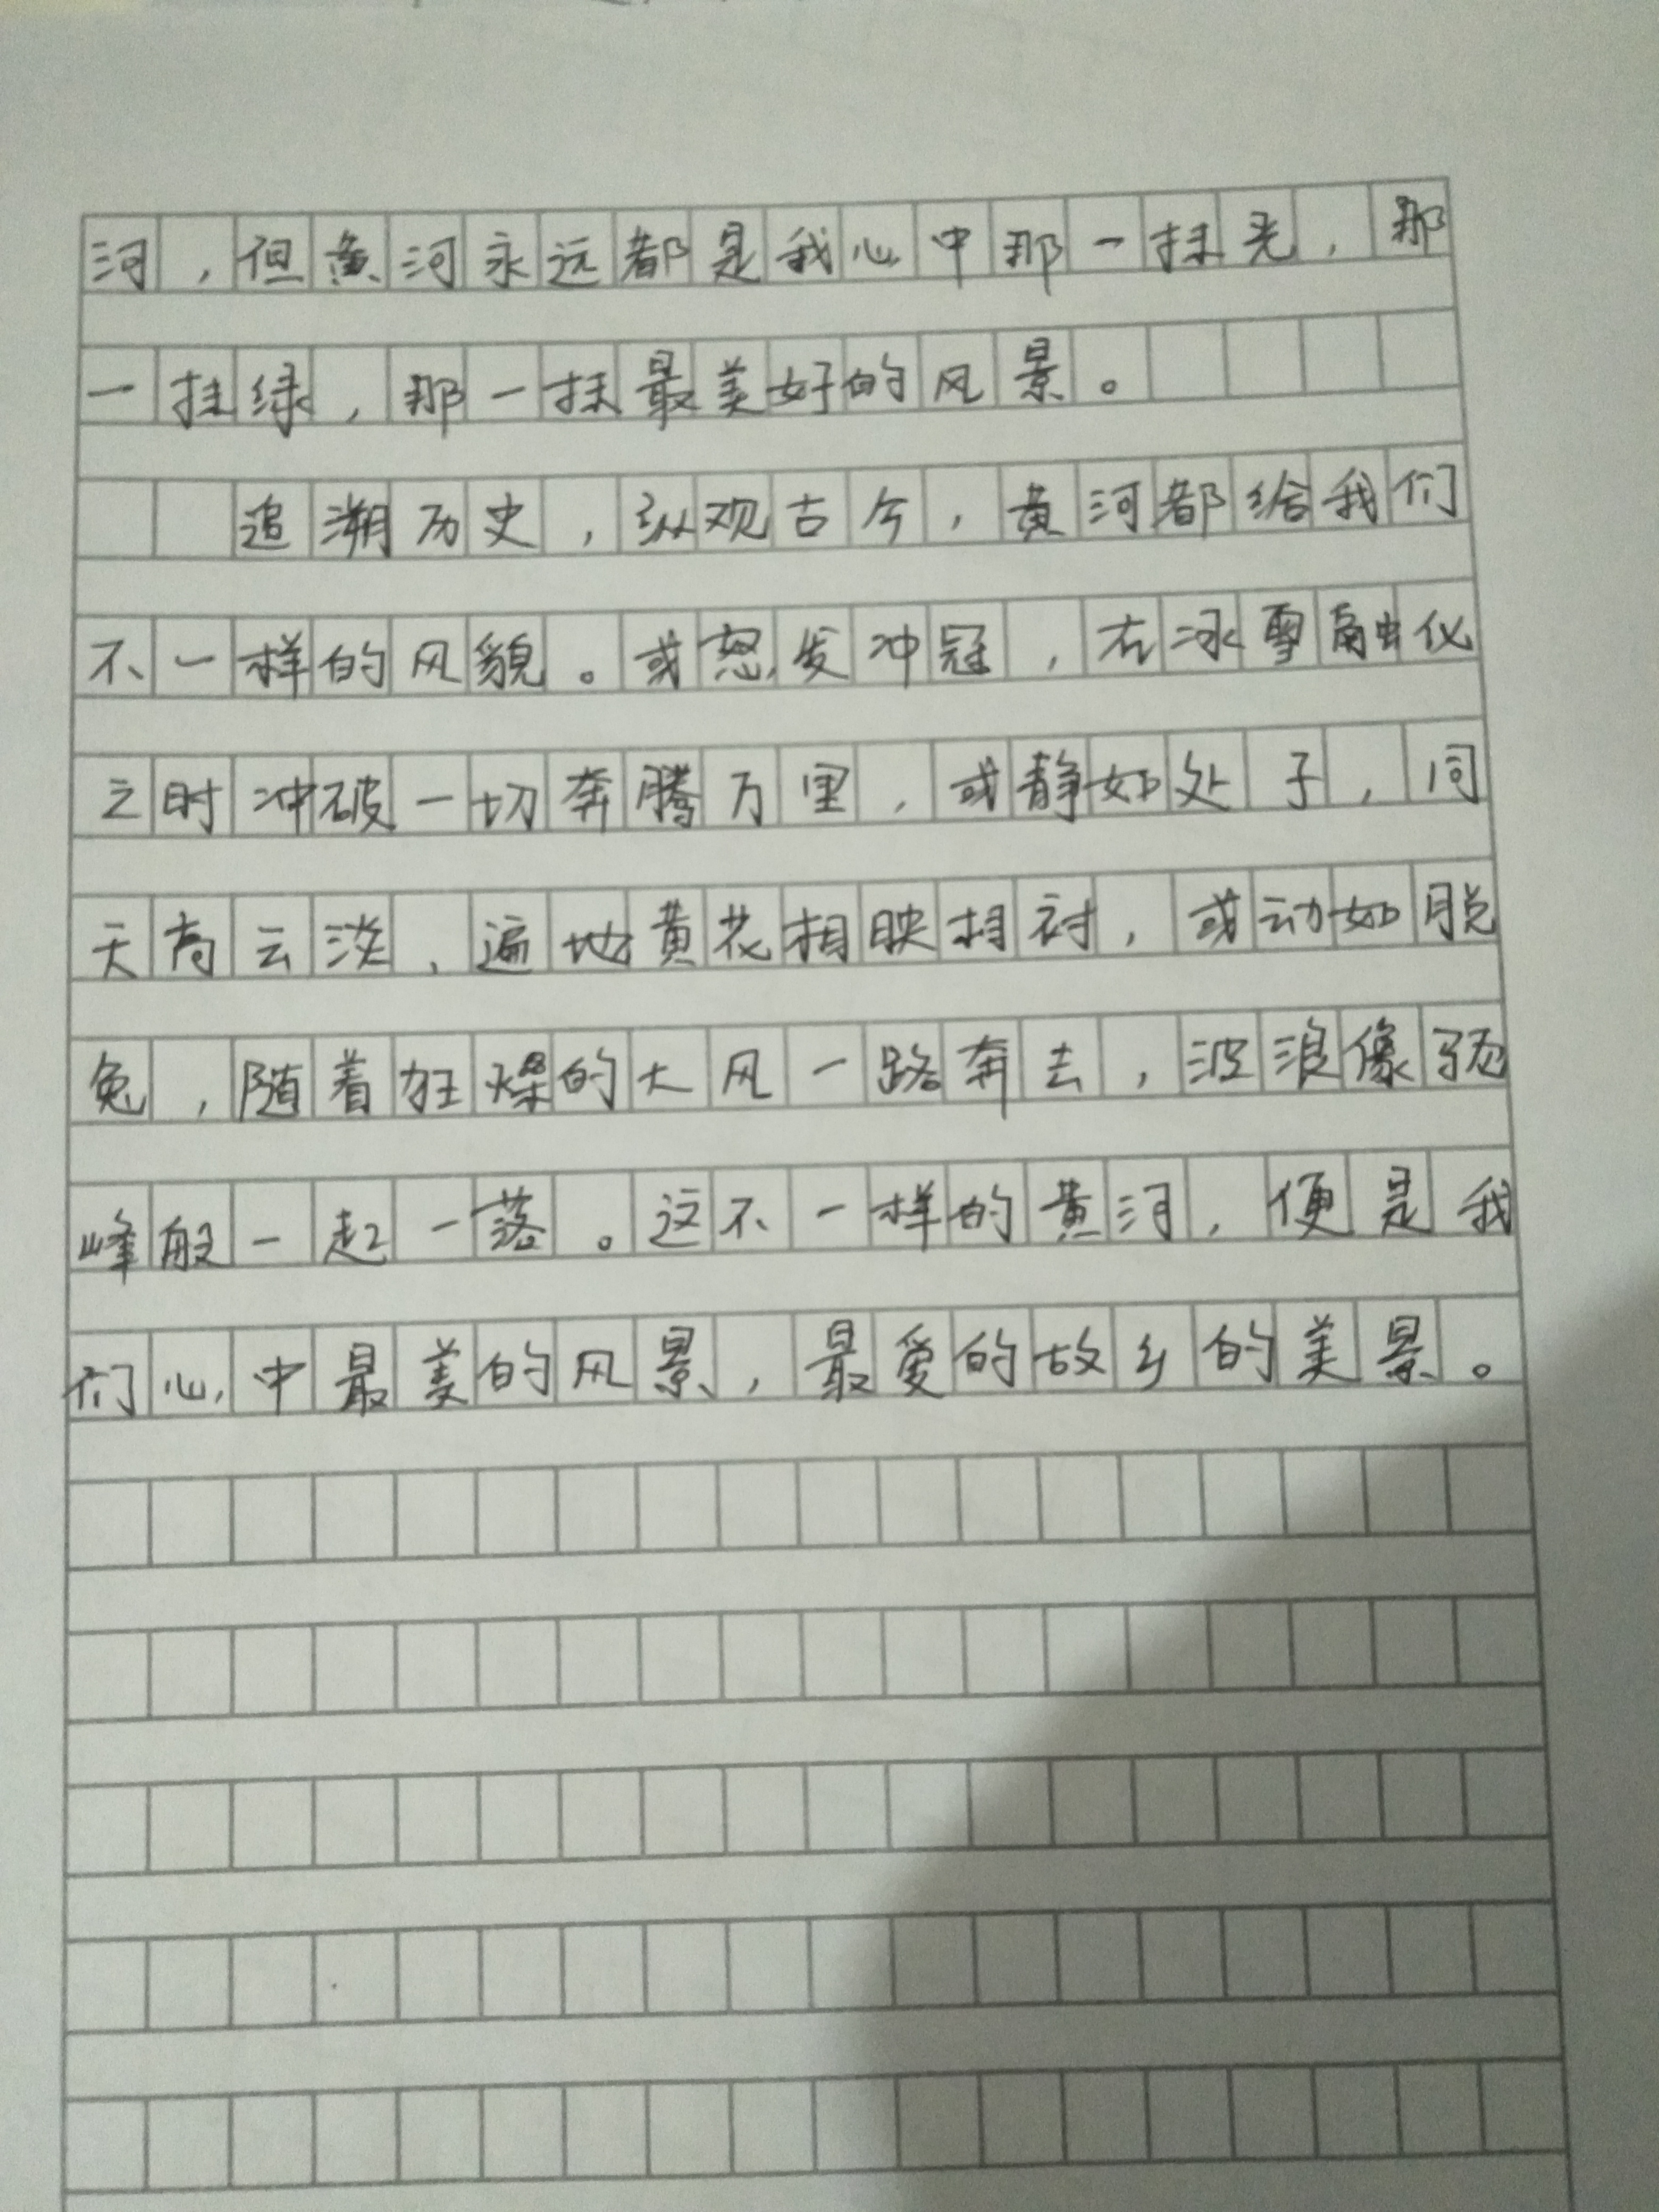 河，但黄河永远都是我心中那一抹光，那
一抹绿，那一抹最美好的风景。
追溯历史，纵观古今，黄河都给我们
不一样的风貌。或怒发冲冠，在冰雪融化
之时冲破一切奔腾万里，或静如处子，同
天高云淡，遍地黄花相映相衬，或动如脱
兔，随着狂燥的大风一路奔去，波浪像驼
峰般一起一落。这不一样的黄河，便是我
们心中最美的风景，最爱的故乡的美景。